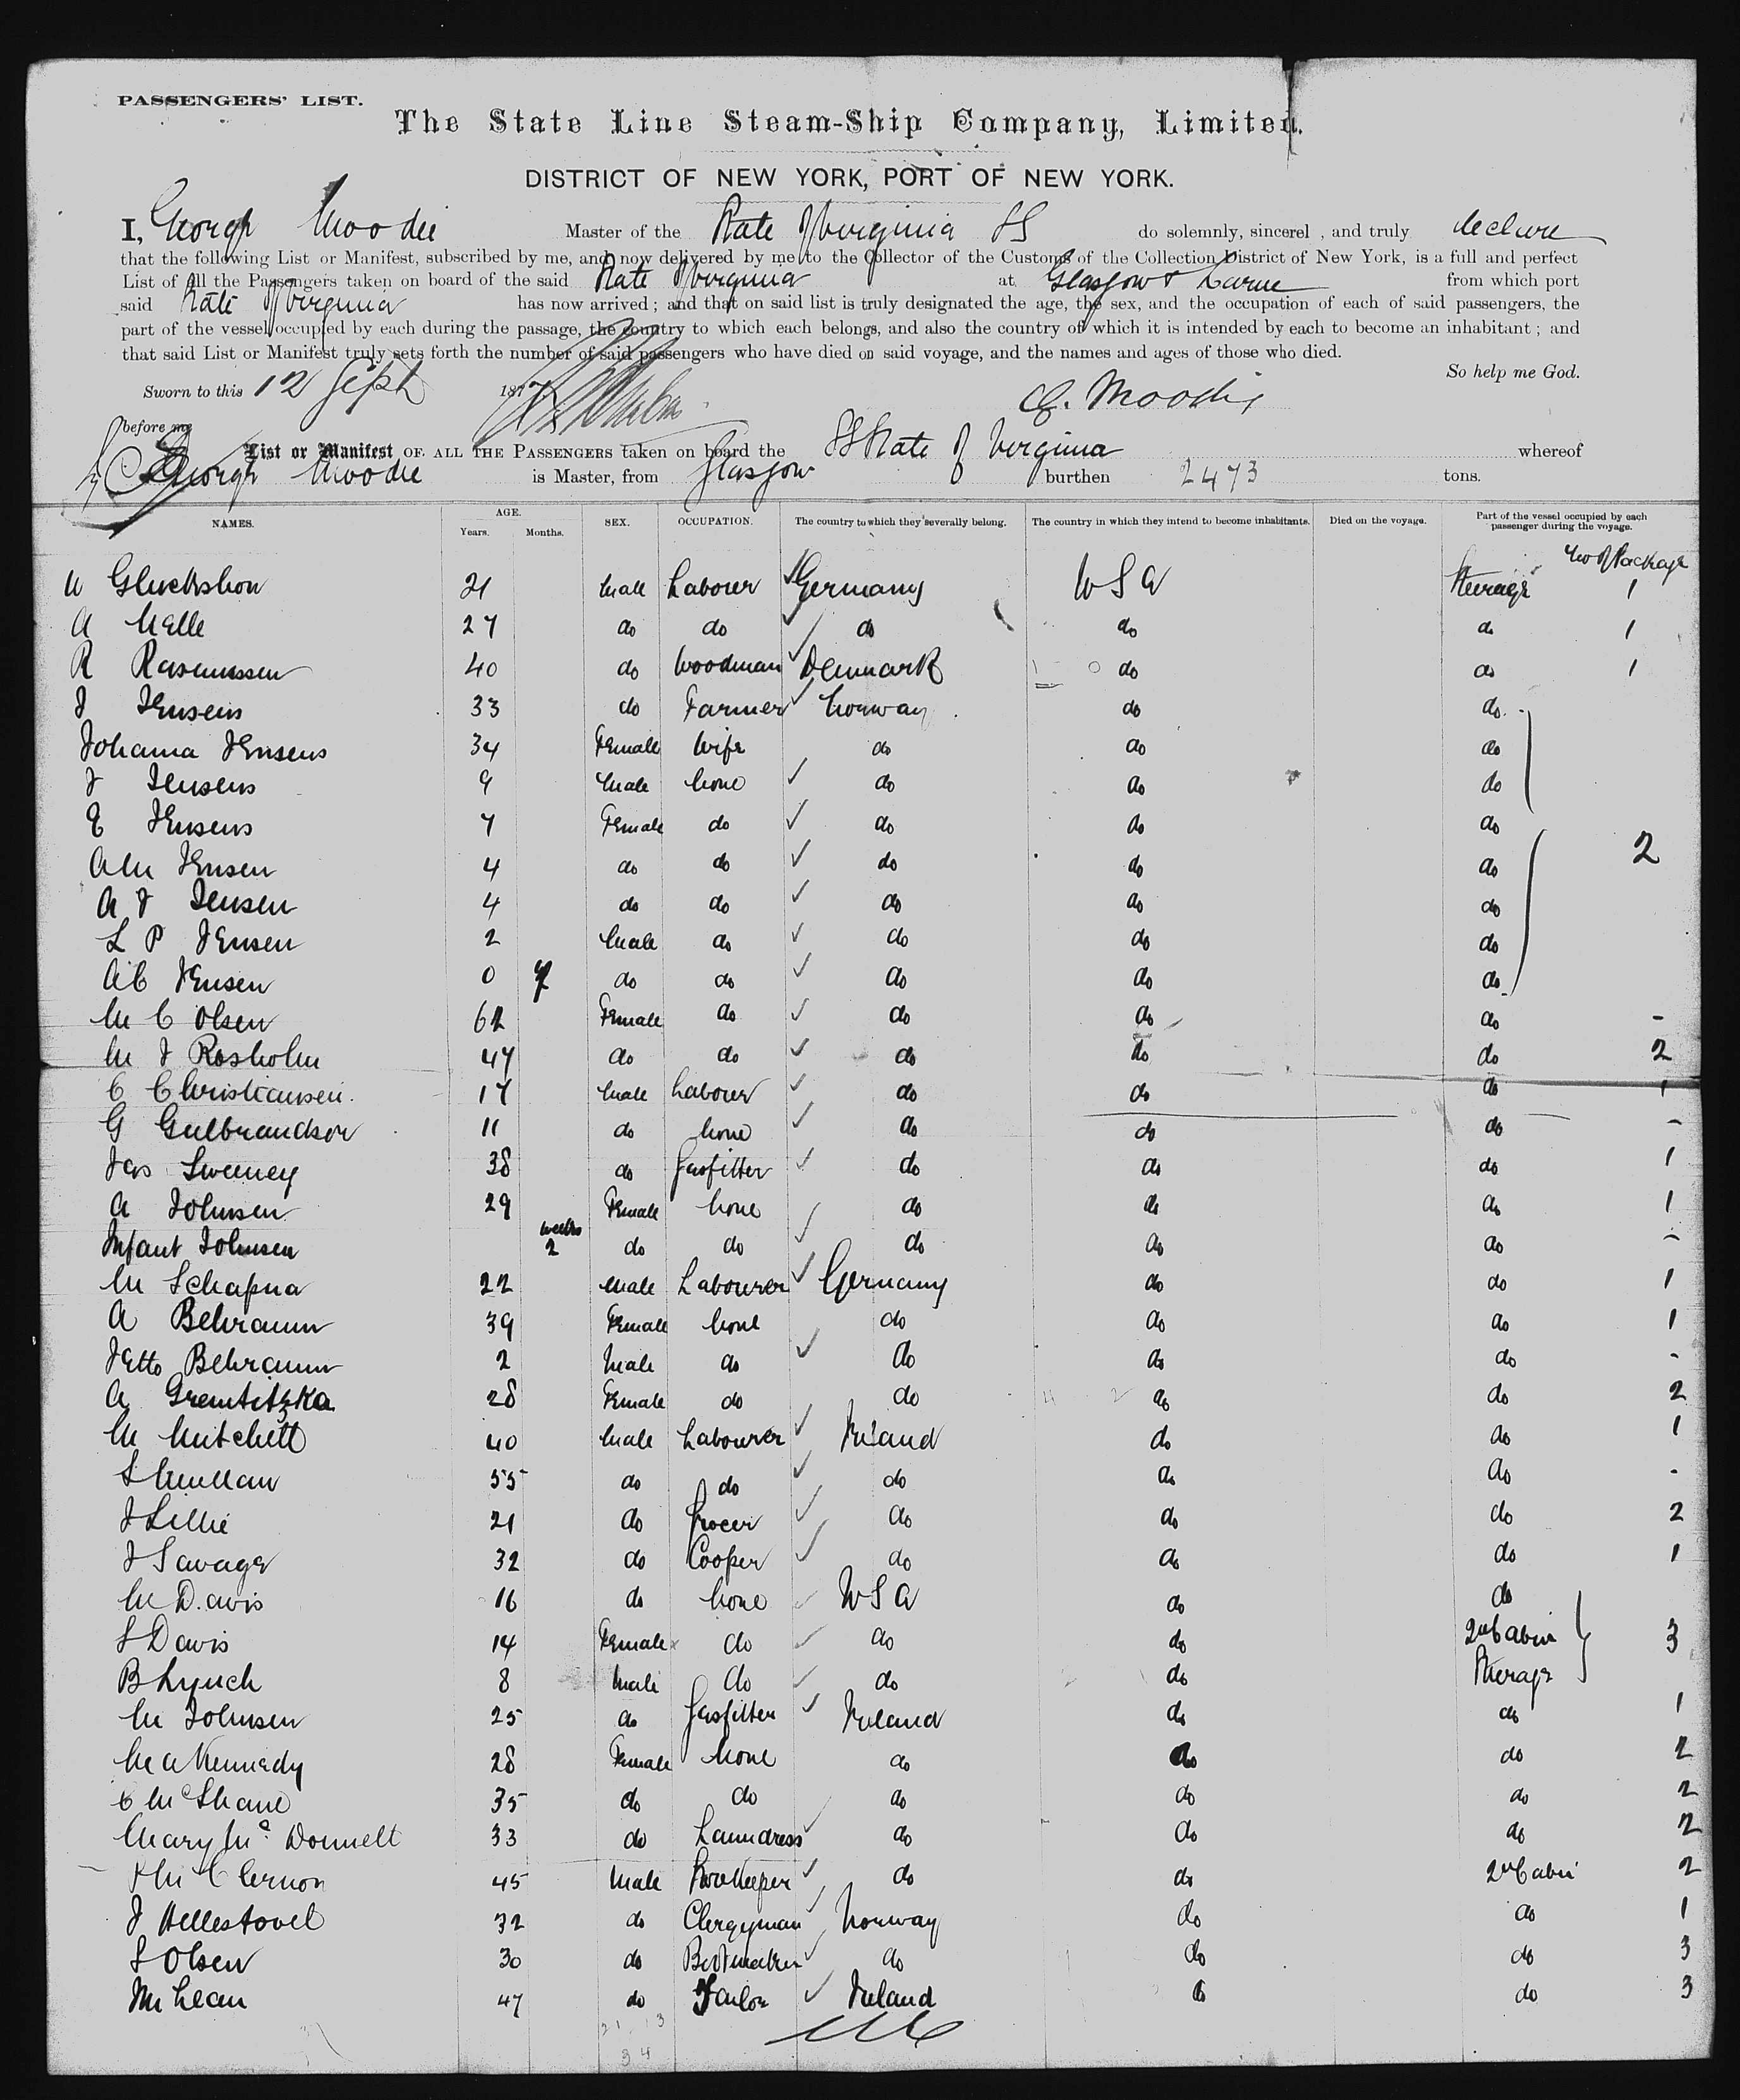 PASSENGERS' LIST.
The State Line Steam-Ship Company, Limited.
DISTRICT OF NEW YORK, PORT OF NEW YORK.
I, George Moodie Master of the State of Virginia SS do solemnly, sincerel , and truly declare
that the following List or Manifest, subscribed by me, and now delivered by me to the Collector of the Customs of the Collection District of New York, is a full and perfect
List of all the Passengers taken on board of the said State of Virginia at Glasgow & Larne from which port
said State of Virginia has now arrived; and that on said list is truly designated the age, the sex, and the occupation of each of said passengers, the
part of the vessel occupied by each during the passage, the country to which each belongs, and also the country of which it is intended by each to become an inhabitant; and
that said List or Manifest truly sets forth the number of said passengers who have died on said voyage, and the names and ages of those who died.
So help me God.
Sworn to this 12 Sept 187
G. Moodie
before me
List or Manifest OF ALL THE PASSENGERS taken on board the SS State of Virginia whereof
George Moodie is Master, from Glasgow burthen 2473 tons.
NAMES. AGE. Years. Months. SEX. OCCUPATION. The country to which they severally belong. The country in which they intend to become inhabitants. Died on the voyage. Part of the vessel occupied by each passenger during the voyage.
No of Package
21 Male Labourer Germany USA Steerage 1
A 27 do do do do do 1
R Rasmussen 40 do Woodman Denmark do do 1
J Jensens 33 do Farmer Norway do do
Johanna Jensens 34 Female Wife do do do
J Jensens 9 Male None do do do
E Jensens 7 Female do do do do
A M Jensen 4 do do do do do 2
A J Jensen 4 do do do do do
L P Jensen 2 Male do do do do
A C Jensen 0 do do do do do
M C Olsen 62 Female do do do do -
M J Rosholm 47 do do do do do 2
C Christiansen 17 Male Labourer do do do 1
G Gulbrandson 11 do None do do do -
Jas Sweeney 38 do Gasfitter do do do 1
A Johnsen 29 Female None do do do 1
Infant Johnsen weeks 2 do do do do do -
M Schapna 22 Male Labourer Germany do do 1
A Behramm 39 Female None do do do 1
Jetto Behramm 2 Male do do do do -
A 28 Female do do do do 2
M Mitchell 40 Male Labourer Ireland do do 1
S Mullan 55 do do do do do -
J Lillie 21 do Grocer do do do 2
J Savage 32 do Cooper do do do 1
M Davis 16 do None USA do do
S Davis 14 Female do do do 2nd Cabin 3
B Lynch 8 Male do do do Steerage
M Johnsen 25 do Gasfitter Ireland do do 1
M A Kennedy 28 Female None do do do 2
C McShane 35 do do do do do 2
Mary McDonnell 33 do Laundress do do do 2
Clernon 45 Male do do 2nd Cabin 2
J Hellestovel 32 do Clergyman Norway do do 1
S Olsen 30 do Bootmaker do do do 3
McLean 47 do Tailor Ireland do do 3
21 13
34